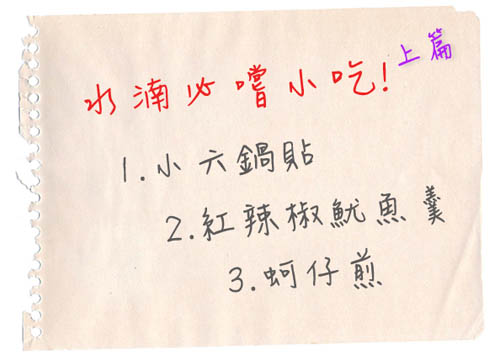 水湳必嚐小吃!上篇
1.小六鍋貼
2.紅辣椒魷魚羹
3.蚵仔煎